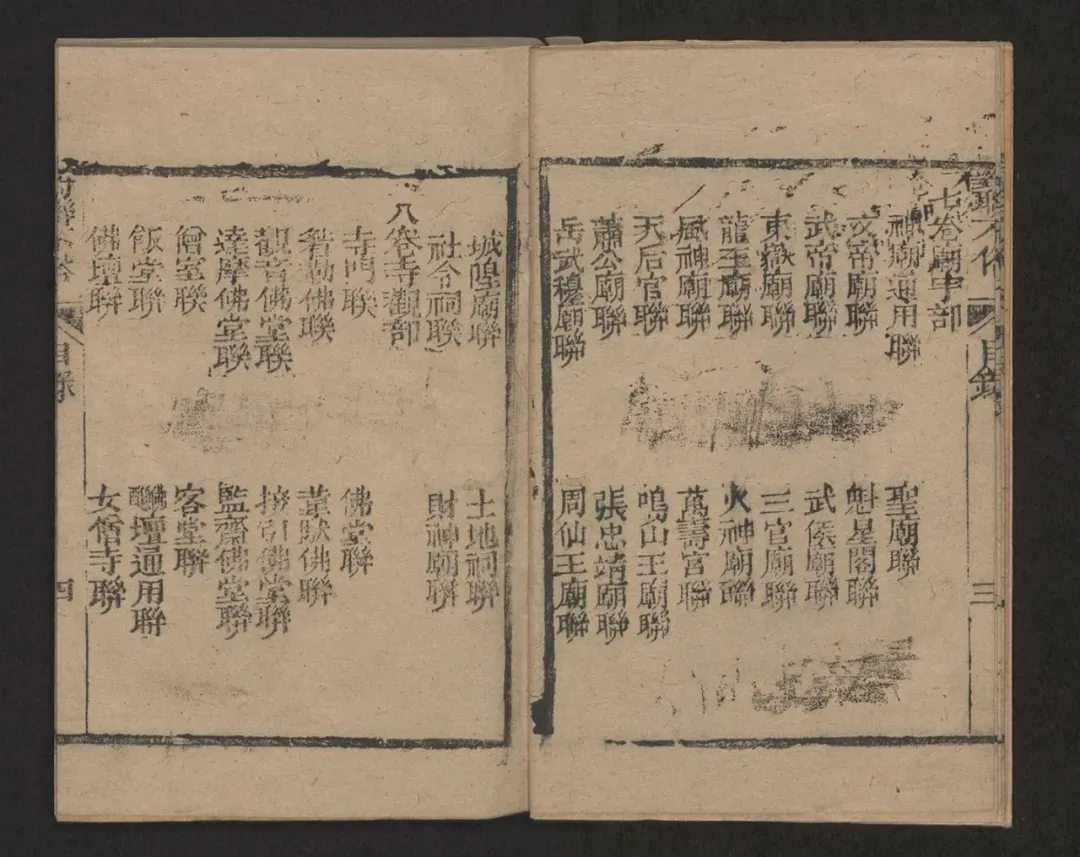 七卷廟宇部
神廟通用聯
聖廟聯
文帝廟聯
魁星閣聯
武帝廟聯
武侯廟聯
東嶽廟聯
三官廟聯
龍王廟聯
火神廟聯
風神廟聯
萬壽宮聯
天后官聯
鳴山王廟聯
蕭公廟聯
張忠靖廟聯
岳武穆廟聯
周仙王廟聯
目錄
三
城隍廟聯
土地祠聯
社令祠聯
財神廟聯
八卷寺觀部
寺門聯
佛堂聯
彌勒佛聯
韋馱佛聯
觀音佛堂聯
接引佛堂聯
達摩佛堂聯
監齋佛堂聯
僧室聯
客堂聯
飯堂聯
醮壇通用聯
佛壇聯
女僧寺聯
目錄
四